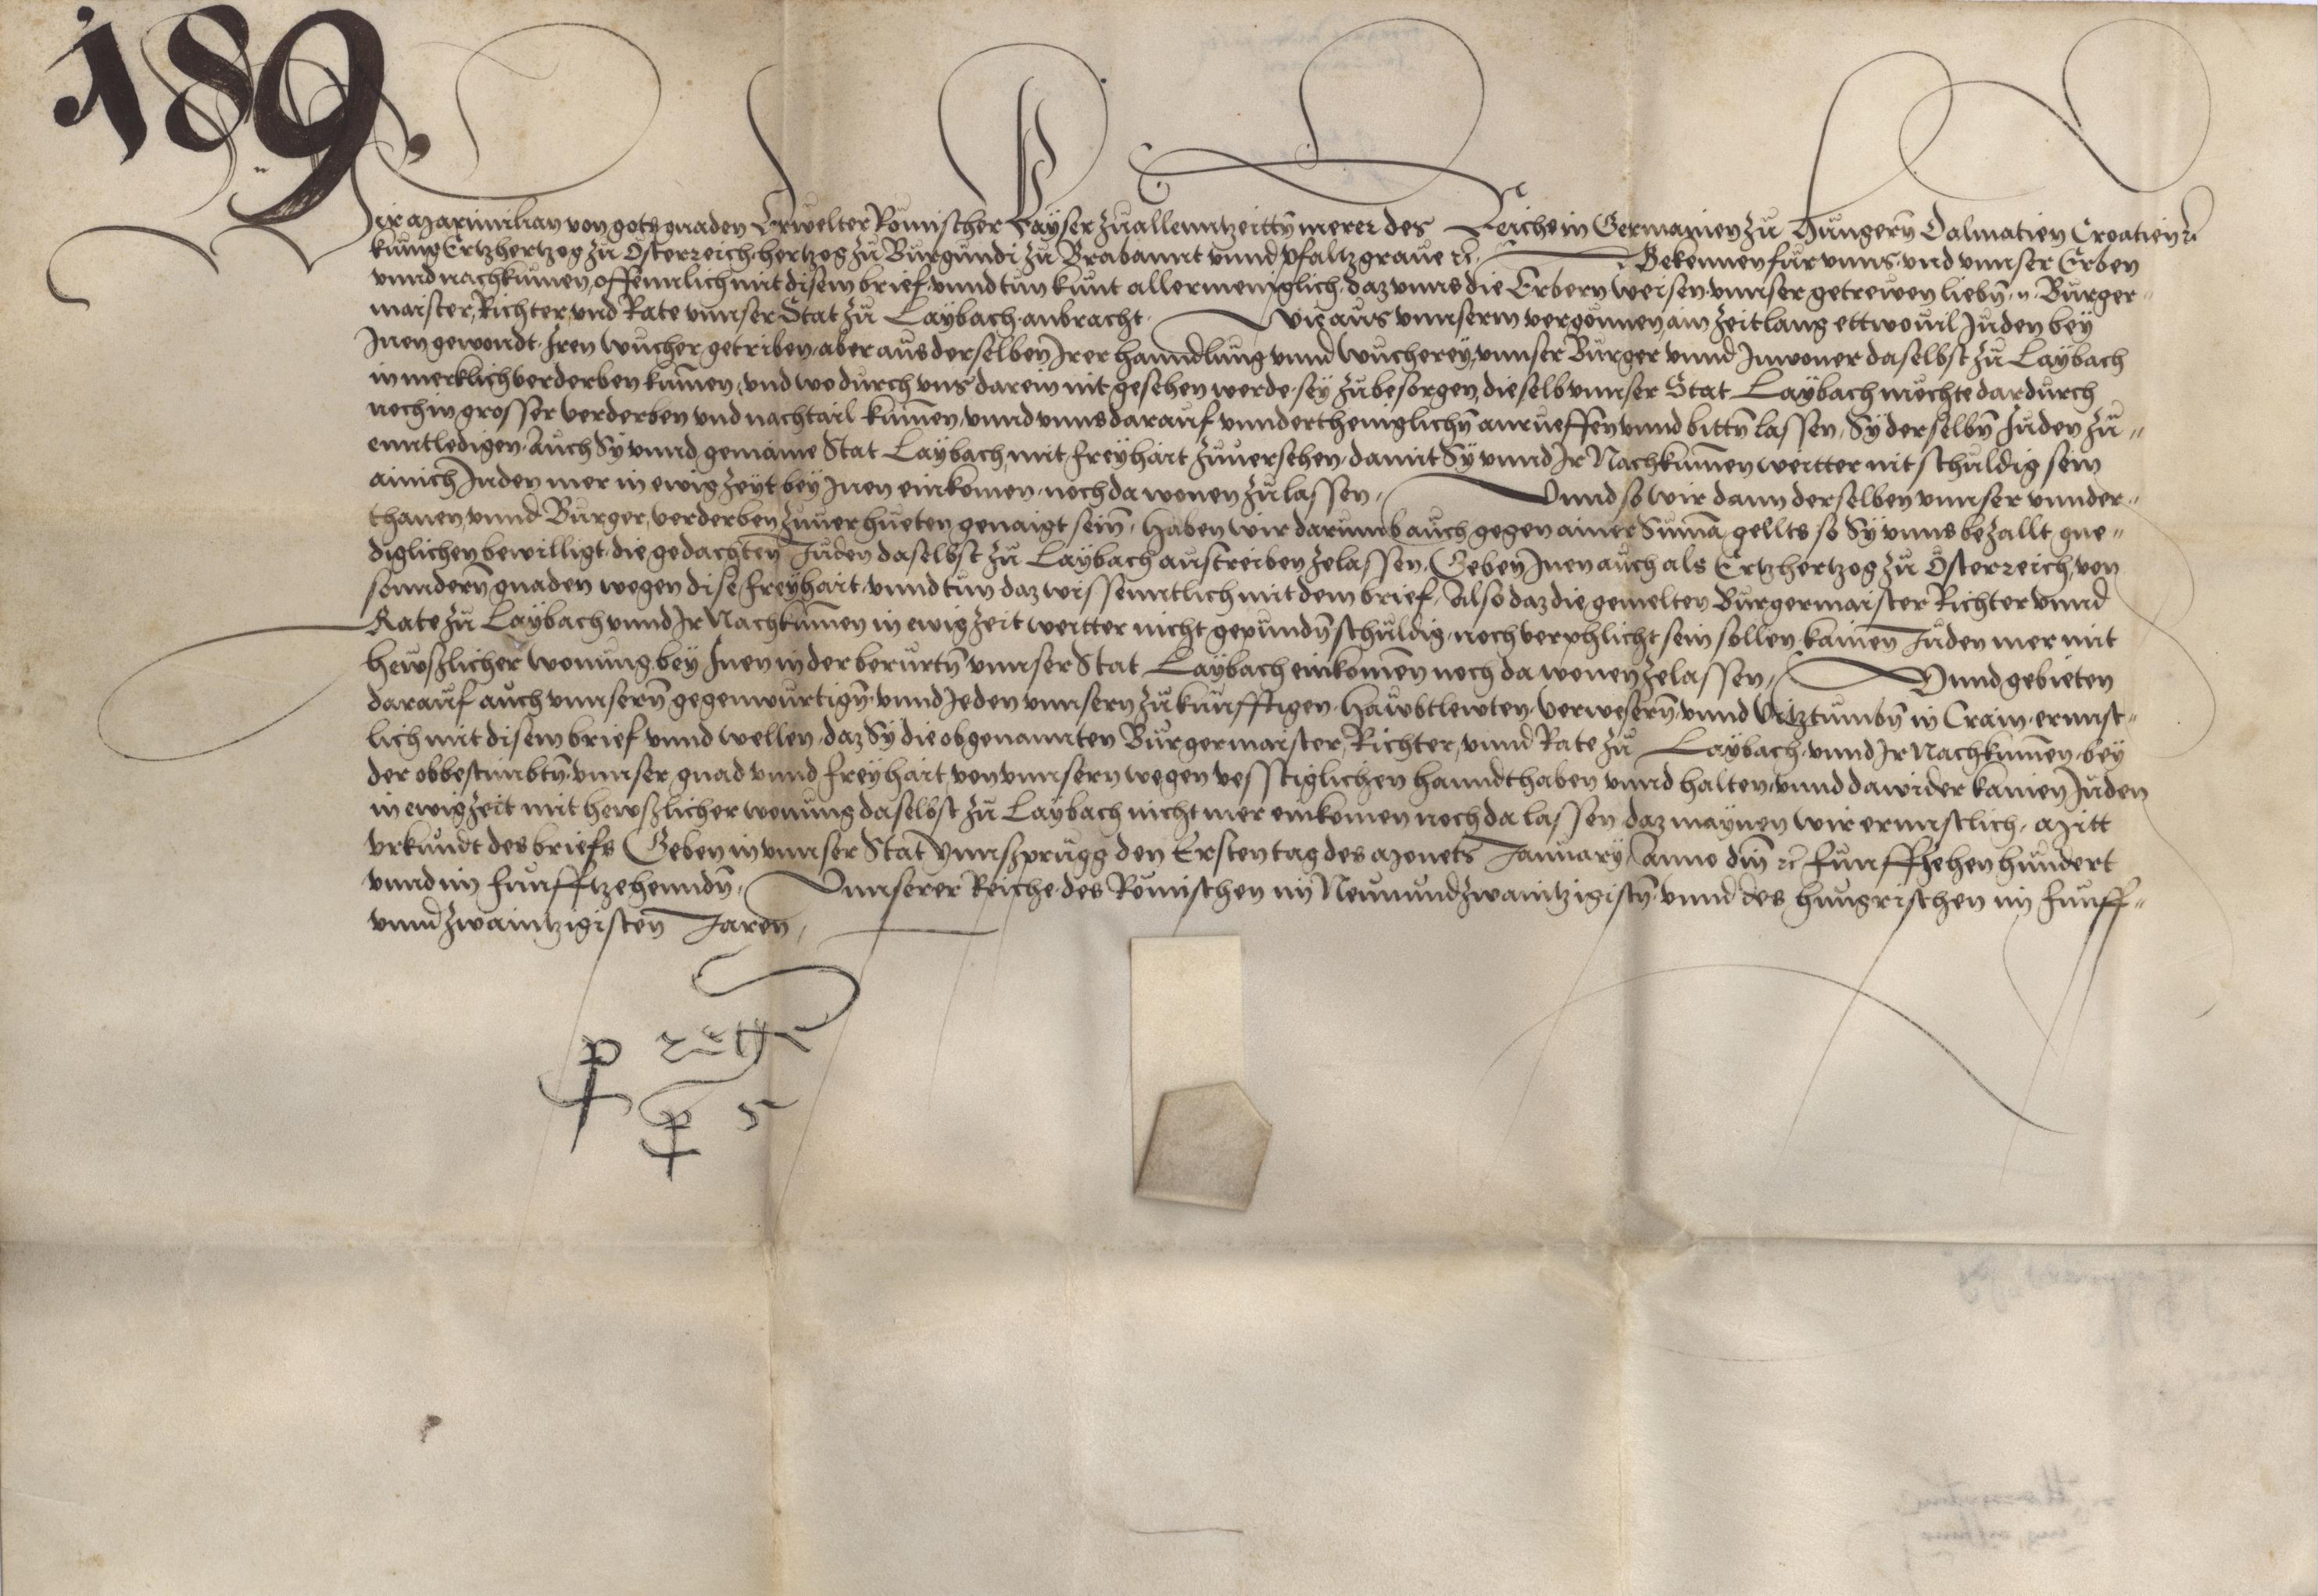 189.
Wir Maximilian von gots gnaden Erwelter Römischer Kayser zuallenntzeittn merer des Reichs in Germanien zu Hungern Dalmatien Croatien ꝛc
kunig Ertzhertzog zu Österreich hertzog zu Burgundi zu Brabannt vnnd pfaltzgraue ꝛc. Bekennen fur vnns vnd vnnser Erben
vnnd nachkumen, offennlich mit disem brief vnnd tun kunt allermeniglich, daz vnns die Erbern weisen vnnser getrewen liebn, N. Burger„
maister, Richter, vnd Rate vnnser Stat zu Laybach anbracht Wie aus vnnserm vergonnen, ain zeitlang ettwouil Juden bey
Inen gewondt Iren wucher getriben, aber aus derselben Irer hanndlung vnnd wucherey, vnnser Burger vnnd Inwoner daselbst zu Laybach
in mercklich verderben kumen, vnd wo durch vns darein nit gesehen werde, sey zubesorgen, dieselb vnnser Stat Laybach möchte dardurch
noch in grosser verderben vnd nachtail kumen, vnnd vnns darauf vnndertheniglichn anrueffen vnnd bittn lassen, Sy derselbn Juden zu„
enntledigen, Auch Sy vnnd gemaine Stat Laybach, mit freyhait zuuersehen, damit Sy vnnd Ir Nachkumen weitter nit schuldig sein
ainich Juden mer in ewig zeyt bey Inen einkomen, noch da wonen zu lassen, Vnnd so wir dann derselben vnnser vnnder„
thanen vnnd Burger, verderben zuuerhueten genaigt sein, Haben wir darumb auch gegen ainer Suma gellts so Sy vnns bezallt gne„
diglichen bewilligt, die gedachten Juden daselbst zu Laybach austreiben zelassen, Geben Inen auch als Ertzhertzog zu Österreich, von
sonndern gnaden wegen dise freyhait, vnnd tun daz wissenntlich mit dem brief, Also daz die gemelten Burgermaister Richter vnnd
Rate zu Laybach vnnd Ir Nachkumen in ewig zeit weitter nicht gepundn schuldig, noch verphlicht sein sollen, kainen Juden mer mit
hewszlicher wonung, bey Inen in der berurtn vnnser Stat Laybach einkomen noch da wonen zelassen, Vnnd gebieten
darauf auch vnnsern gegenwurtign vnnd Jeden vnnsern zukunfftigen, Hawbtlewten, verwesern, vnnd Vitztumbn in Crain, ernnst„
lich mit disem brief vnnd wellen, daz Sy die obgenannten Burgermaister, Richter, vnnd Rate zu Laybach, vnnd Ir Nachkumen, bey
der obbestimbtn vnnser gnad vnnd freyhait, von vnnsern wegen vesstiglichen hanndthaben vnnd halten, vnnd dawider kainen Juden
in ewig zeit mit hewszlicher wonung daselbst zu Laybach nicht mer einkomen noch da lassen, daz maynen wir ernnstlich, Mitt
vrkundt des briefs Geben in vnnser Stat Ynnszprugg den Ersten tag des Monets January, Anno dni ꝛc Funffzehen hundert
vnnd im funfftzehenndn, Vnnserer Reiche des Römischen im Newnundzwaintzigistn vnnd des hungrischen im funff„
vnnd zwaintzigisten Jaren,
p
p